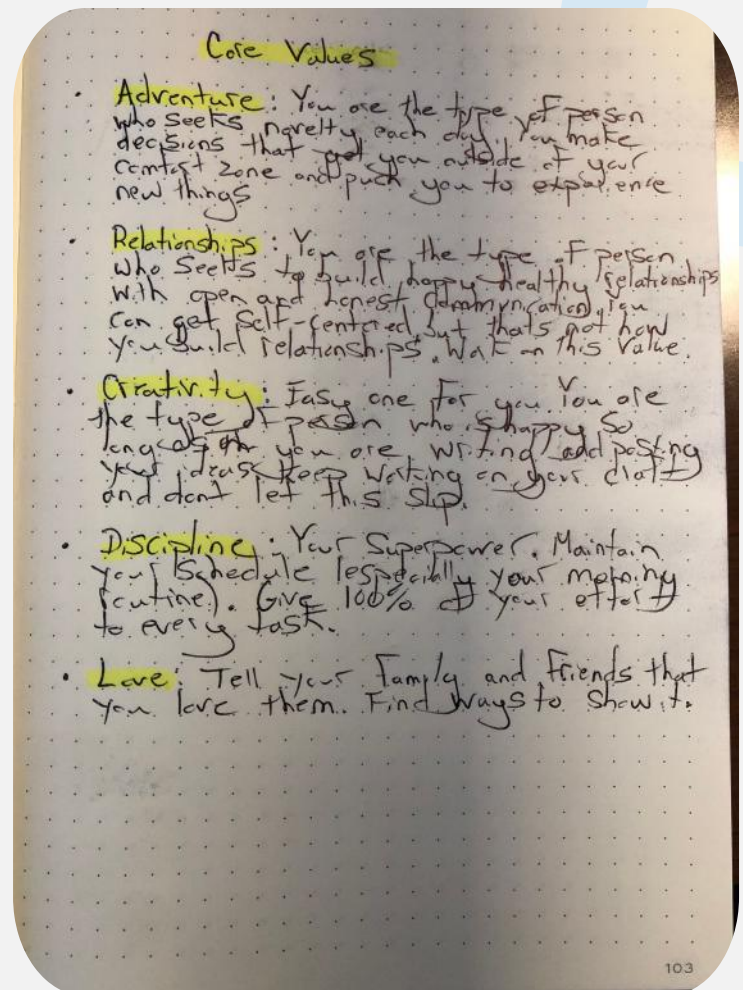 Core Values
• Adventure: You are the type of person
who seeks novelty each day. You make
decisions that get you outside of your
comfort zone and push you to experience
new things
• Relationships: You are the type of person
who seeks to build happy, healthy relationships
with open and honest communication. You
can get self-centered but thats not how
you build relationships. Work on this value.
• Creativity: Easy one for you. You are
the type of person who is happy so
long as you are writing and posting
your ideas. Keep working on your craft
and dont let this slip.
• Discipline: Your Superpower. Maintain
your schedule (especially your morning
routine). Give 100% of your effort
to every task.
• Love: Tell your family and friends that
you love them. Find ways to show it.
103